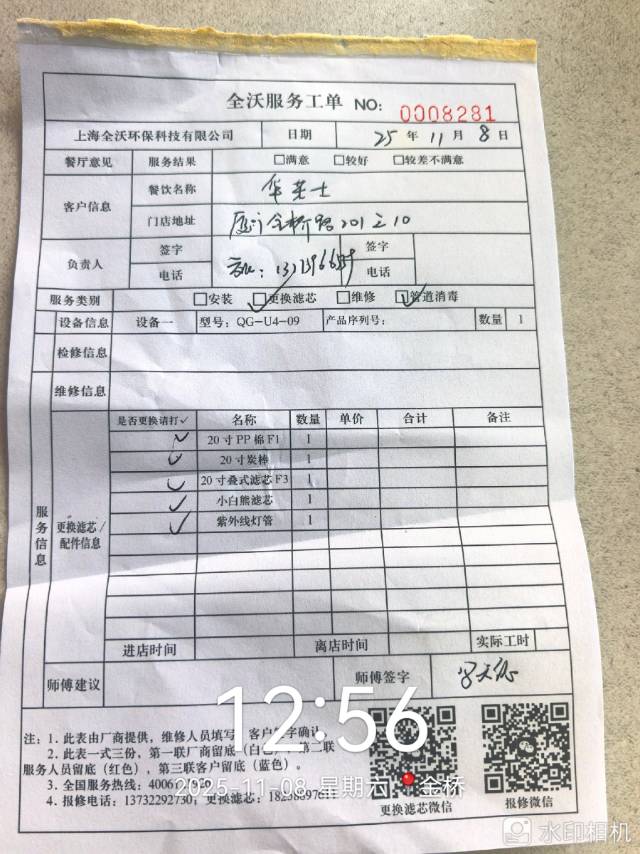 全沃服务工单 NO: 0008281
上海全沃环保科技有限公司 日期 25 年 11 月 8 日
餐厅意见 服务结果 □满意 □较好 □较差不满意
客户信息 餐饮名称 华莱士
门店地址 金桥路201之10
负责人 签字 签字
电话 电话
服务类别 □安装 □更换滤芯 □维修 □管道消毒
设备信息 设备一 型号: QG-U4-09 产品序列号: 数量 1
检修信息
维修信息
服务信息
更换滤芯/配件信息
是否更换请打✓ 名称 数量 单价 合计 备注
✓ 20寸PP棉F1 1
✓ 20寸炭棒 1
✓ 20寸叠式滤芯F3 1
✓ 小白熊滤芯 1
✓ 紫外线灯管 1
进店时间 离店时间 实际工时
师傅建议 师傅签字
12:56
注: 1. 此表由厂商提供，维修人员填写，客户签字确认
2. 此表一式三份，第一联厂商留底（白色），第二联
服务人员留底（红色），第三联客户留底（蓝色）。
3. 全国服务热线: 4006
2025-11-08 星期六 金桥
4. 报修电话: 13732292730, 更换滤芯:
更换滤芯微信 报修微信
水印相机